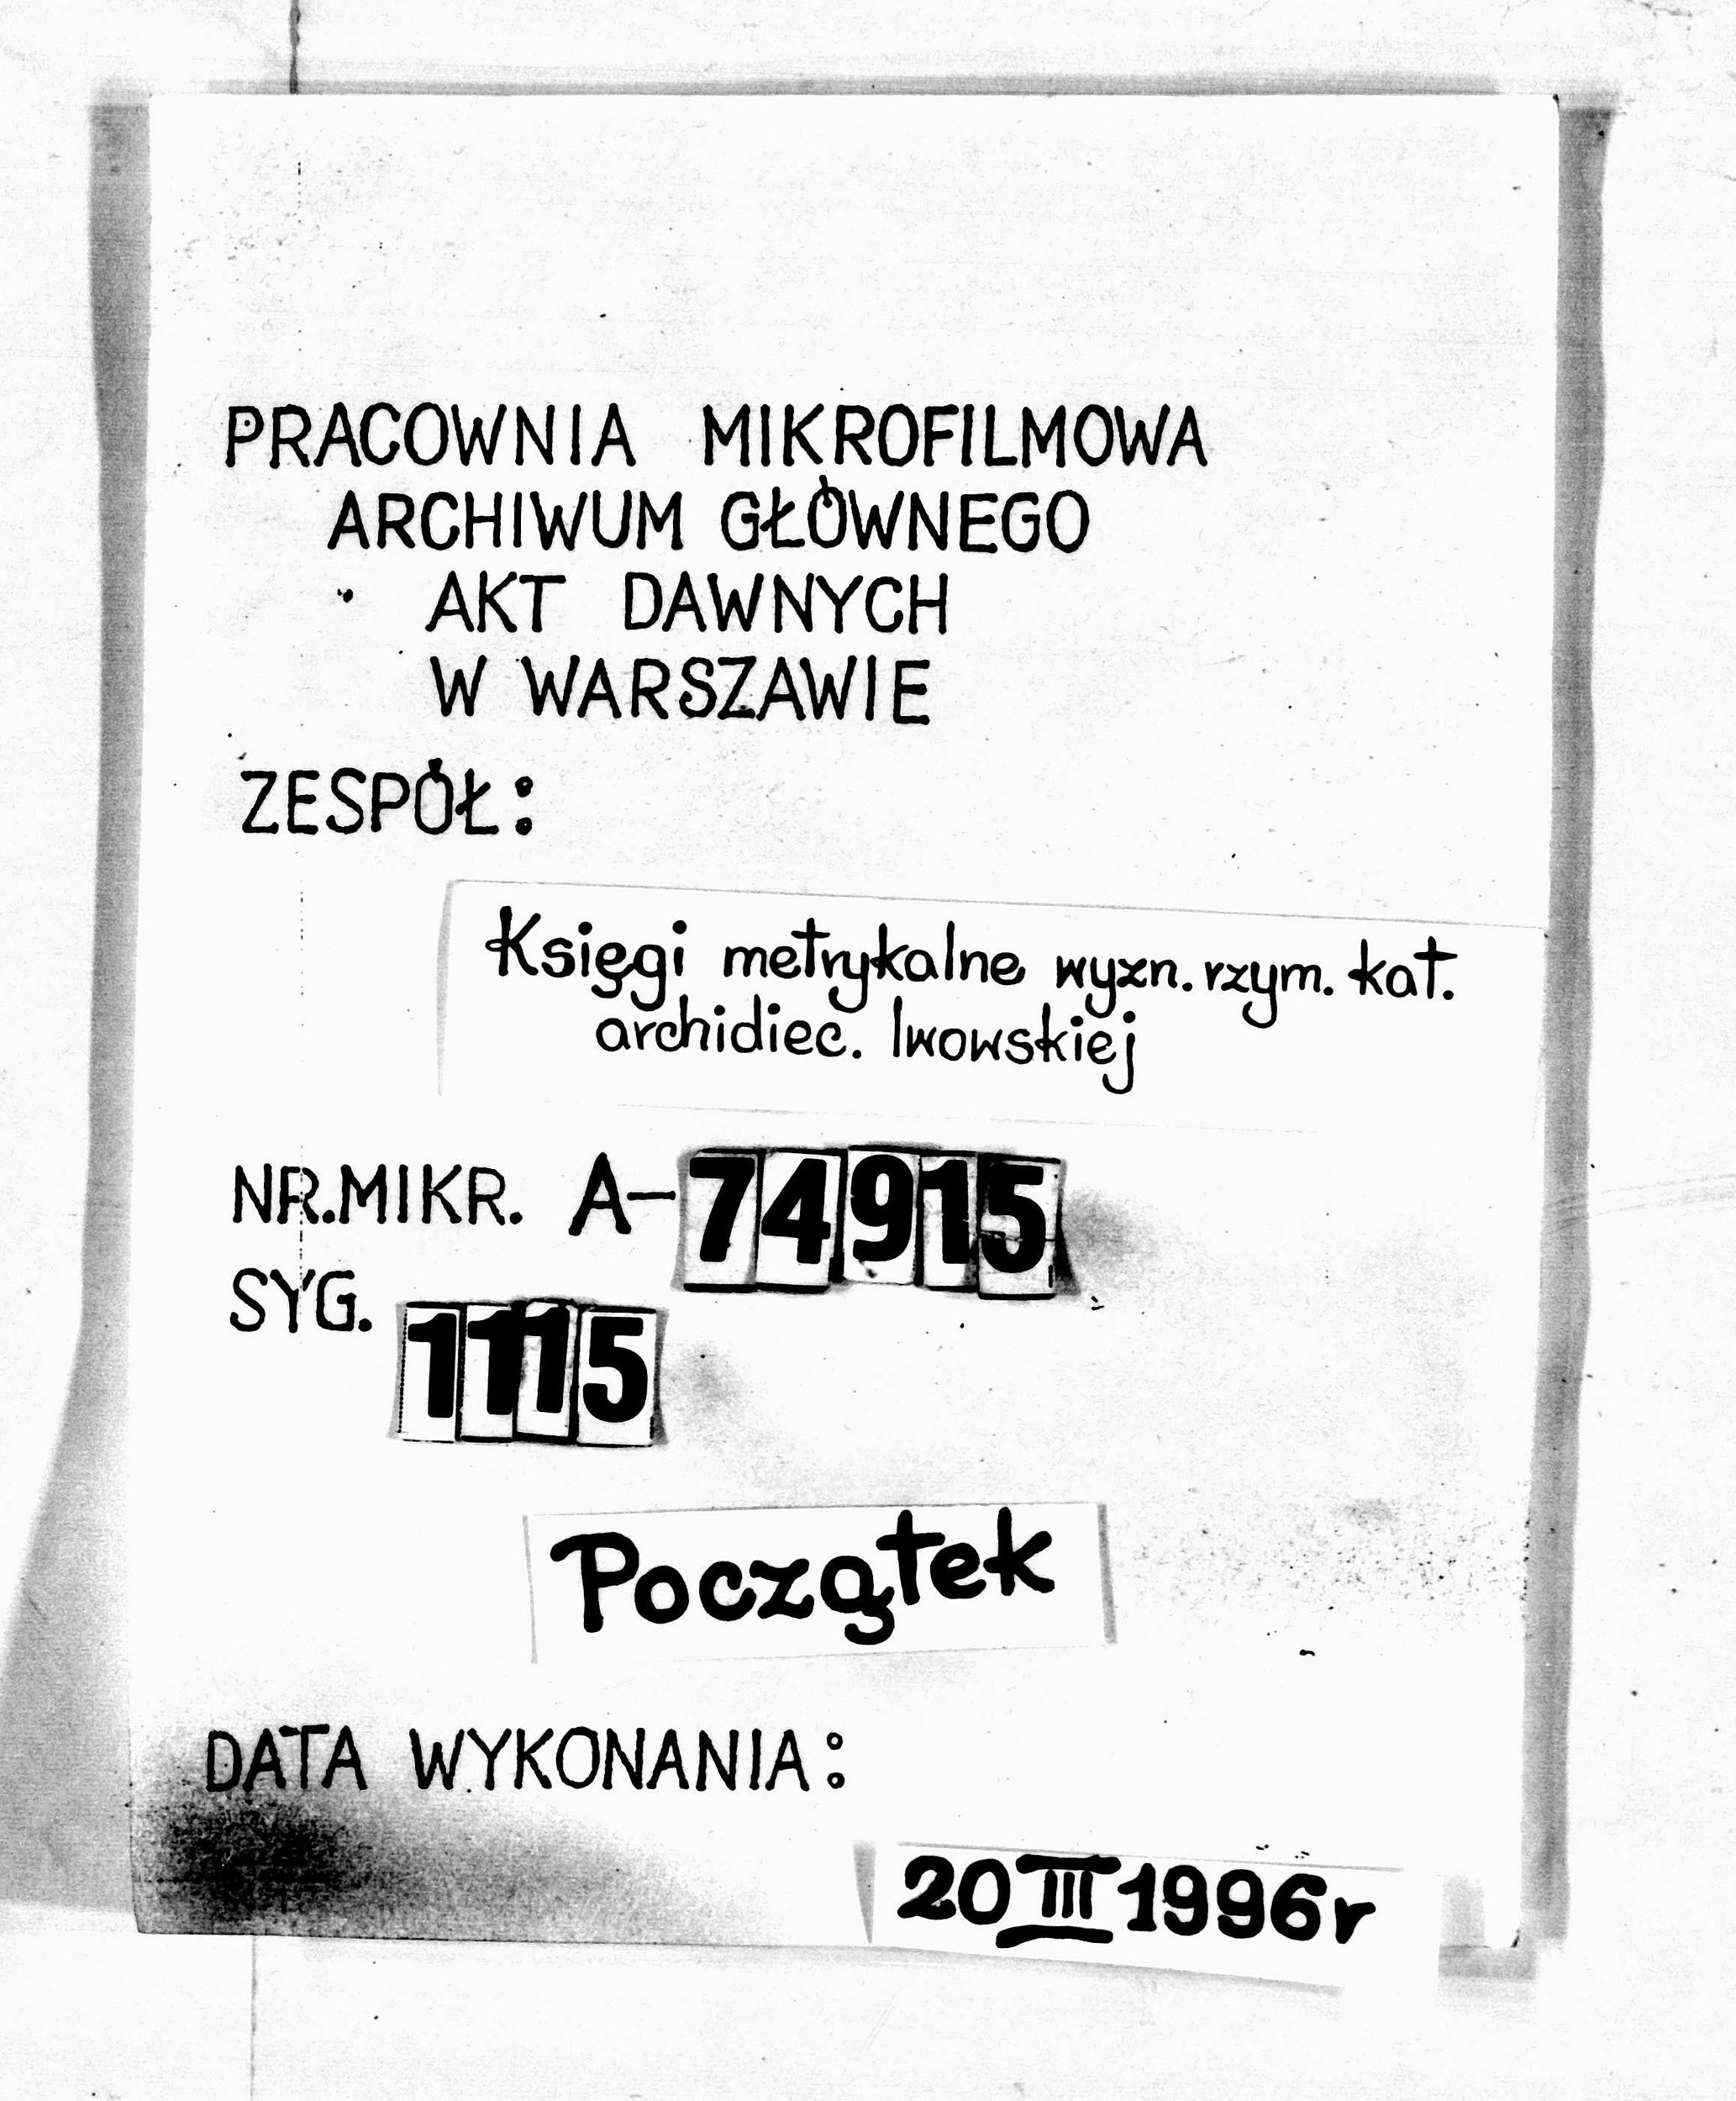 PRACOWNIA MIKROFILMOWA
ARCHIWUM GŁÓWNEGO
AKT DAWNYCH
W WARSZAWIE
ZESPÓŁ:
Księgi metrykalne wyzn. rzym. kat.
archidiec. lwowskiej
NR.MIKR. A-74915
SYG. 1115
Początek
DATA WYKONANIA:
20 III 1996r